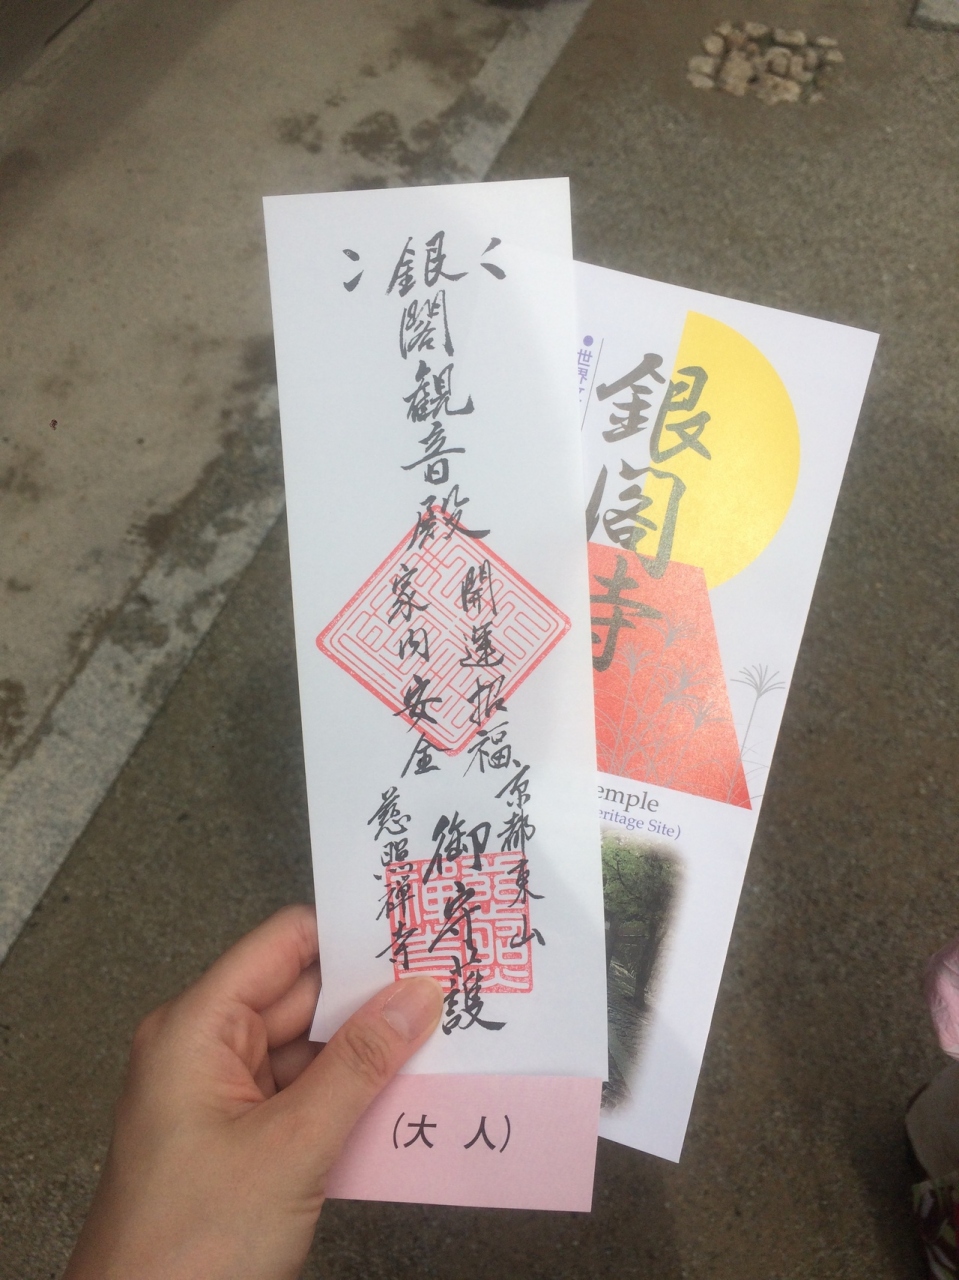 銀閣観音殿
開運招福
家内安全
京都東山
御守護
慈照禅寺
(大 人)
●世界
銀閣寺
emple
eritage Site)